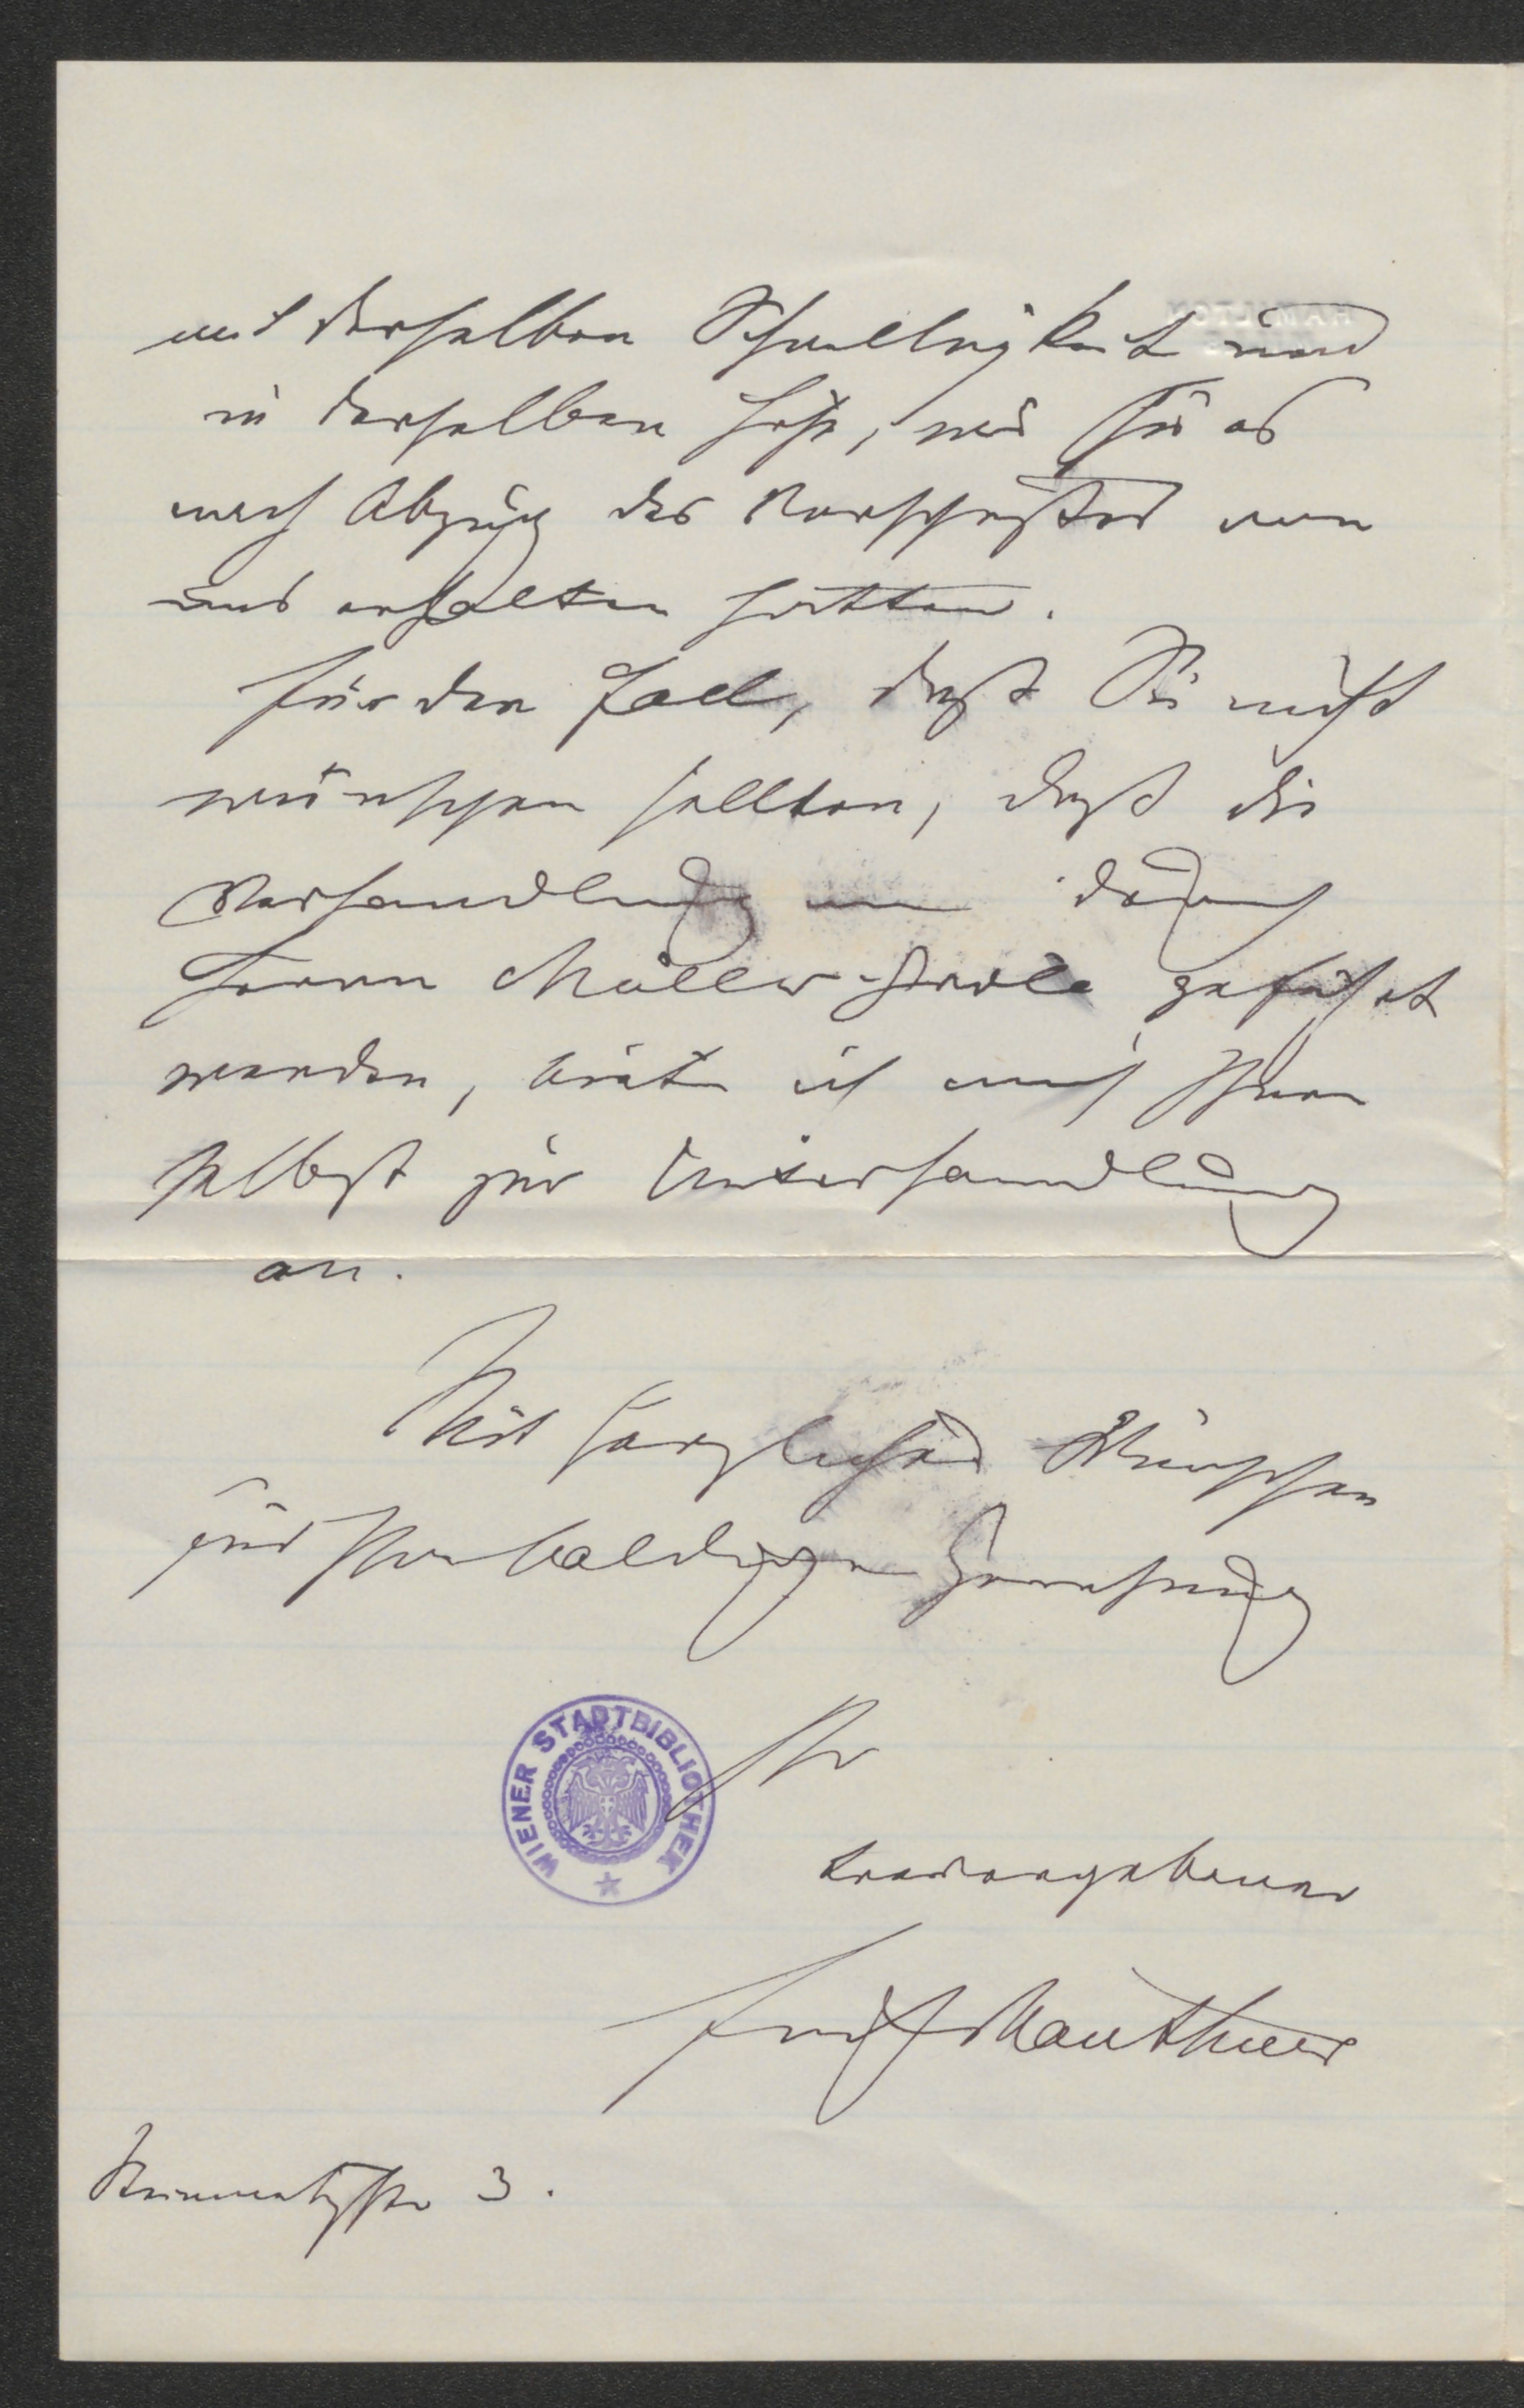 mit derselben Schnelligkeit und
in derselben Höhe, wie Sie es
nach Abzug des Vorschußes von
uns erhalten hätten.
Für den Fall, daß Sie nicht
wünschen sollten, daß die
Verhandlung durch
Herrn Müller-Stelle geführt
werden, biete ich mich Ihnen
selbst zur Unterhandlung
an.
Mit herzlichen Wünschen
für Ihre baldige Genesung
Ihr
treuergebener
Fritz Mauthner
3.
WIENER STADTBIBLIOTHEK
HAMILTON